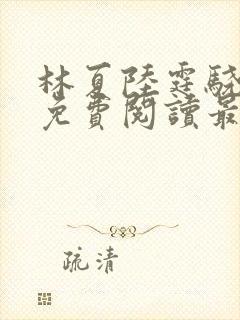 林夏陸霆驍
免費閱讀最
疏清